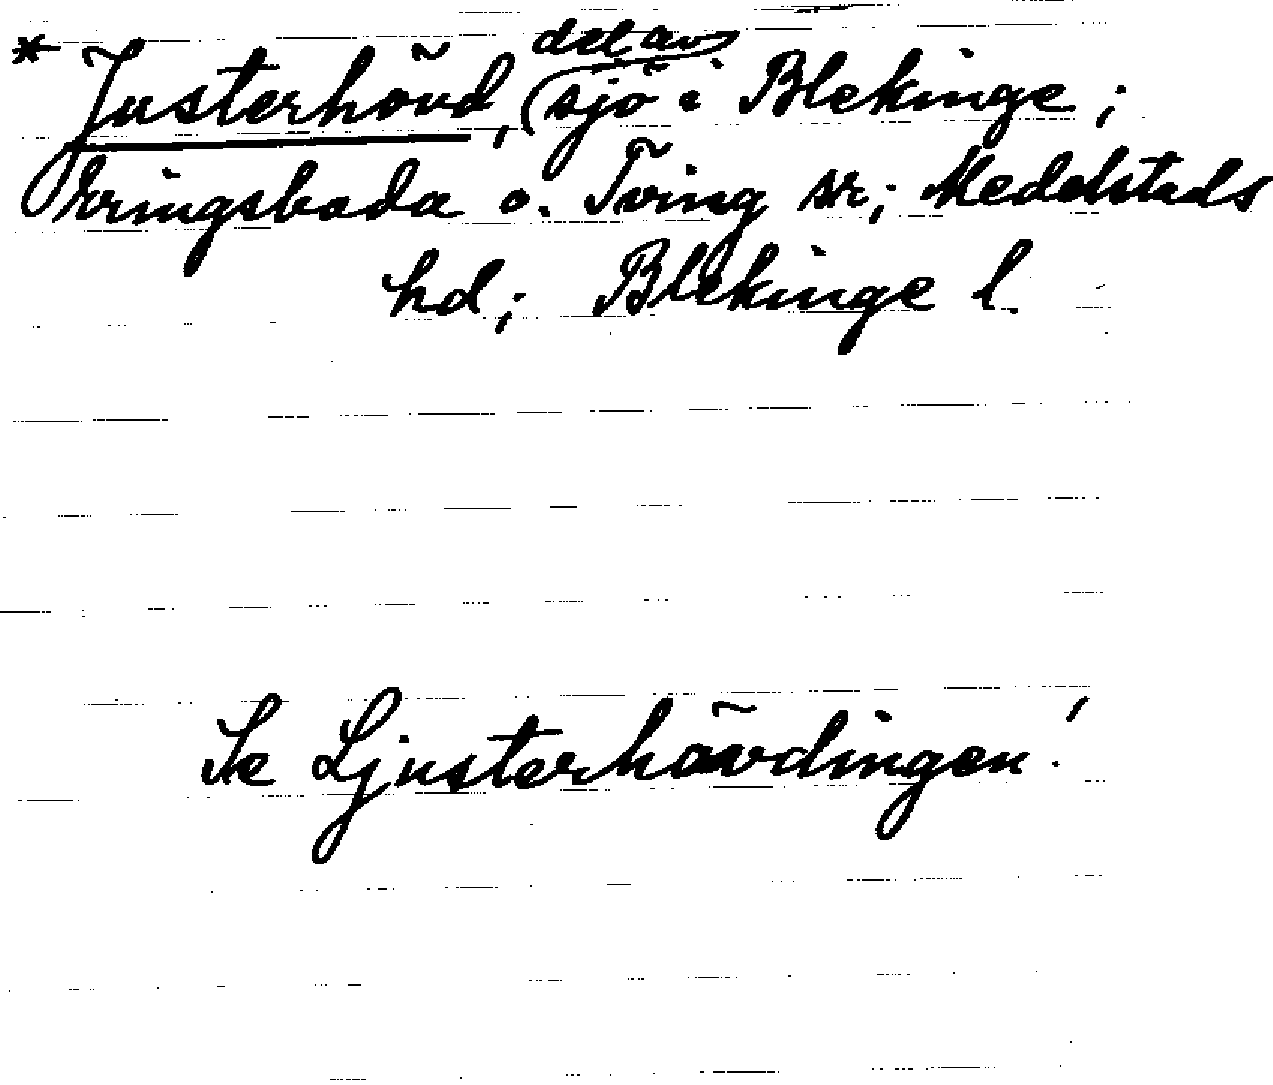 * Justerhövd, del av sjö i Blekinge;
Eringsboda o. Tving snr; Medelstads
hd; Blekinge l.
Se Ljusterhövdingen!